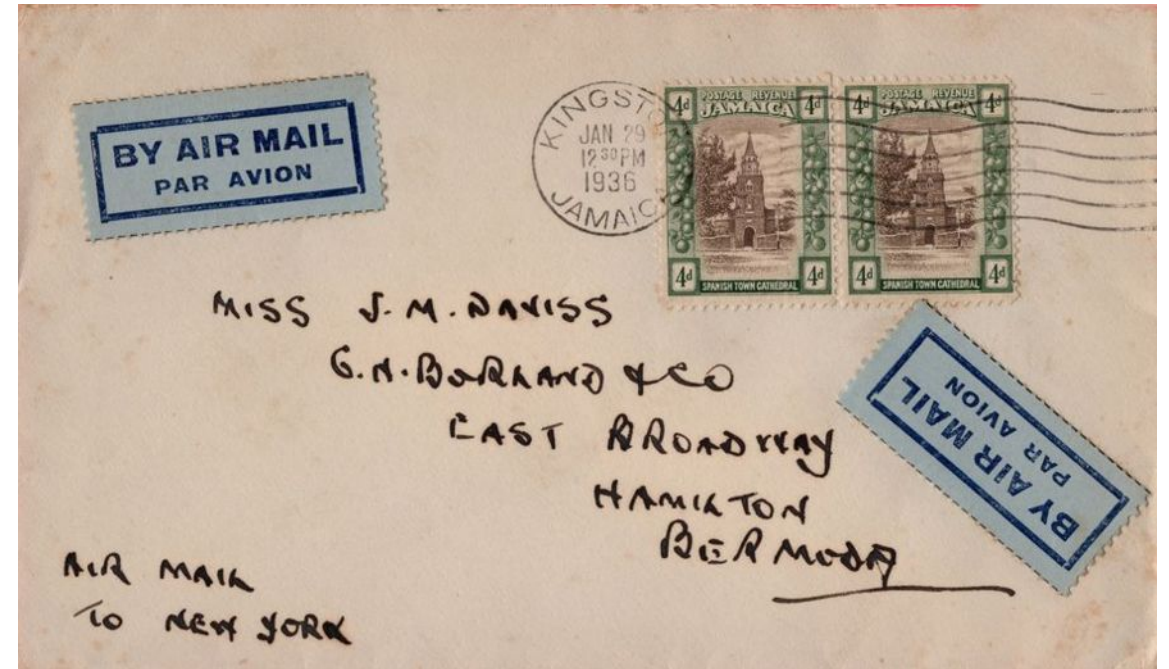 BY AIR MAIL
PAR AVION
KINGSTO
JAN 29
12 30 PM
1936
JAMAIC
4d POSTAGE REVENUE 4d
JAMAICA
4d 4d
SPANISH TOWN CATHEDRAL
4d POSTAGE REVENUE 4d
JAMAICA
4d 4d
SPANISH TOWN CATHEDRAL
MISS J.M. DAVISS
G.H. BORLAND & CO
EAST BROADWAY
HAMILTON
BERMUDA
BY AIR MAIL
PAR AVION
AIR MAIL
TO NEW YORK